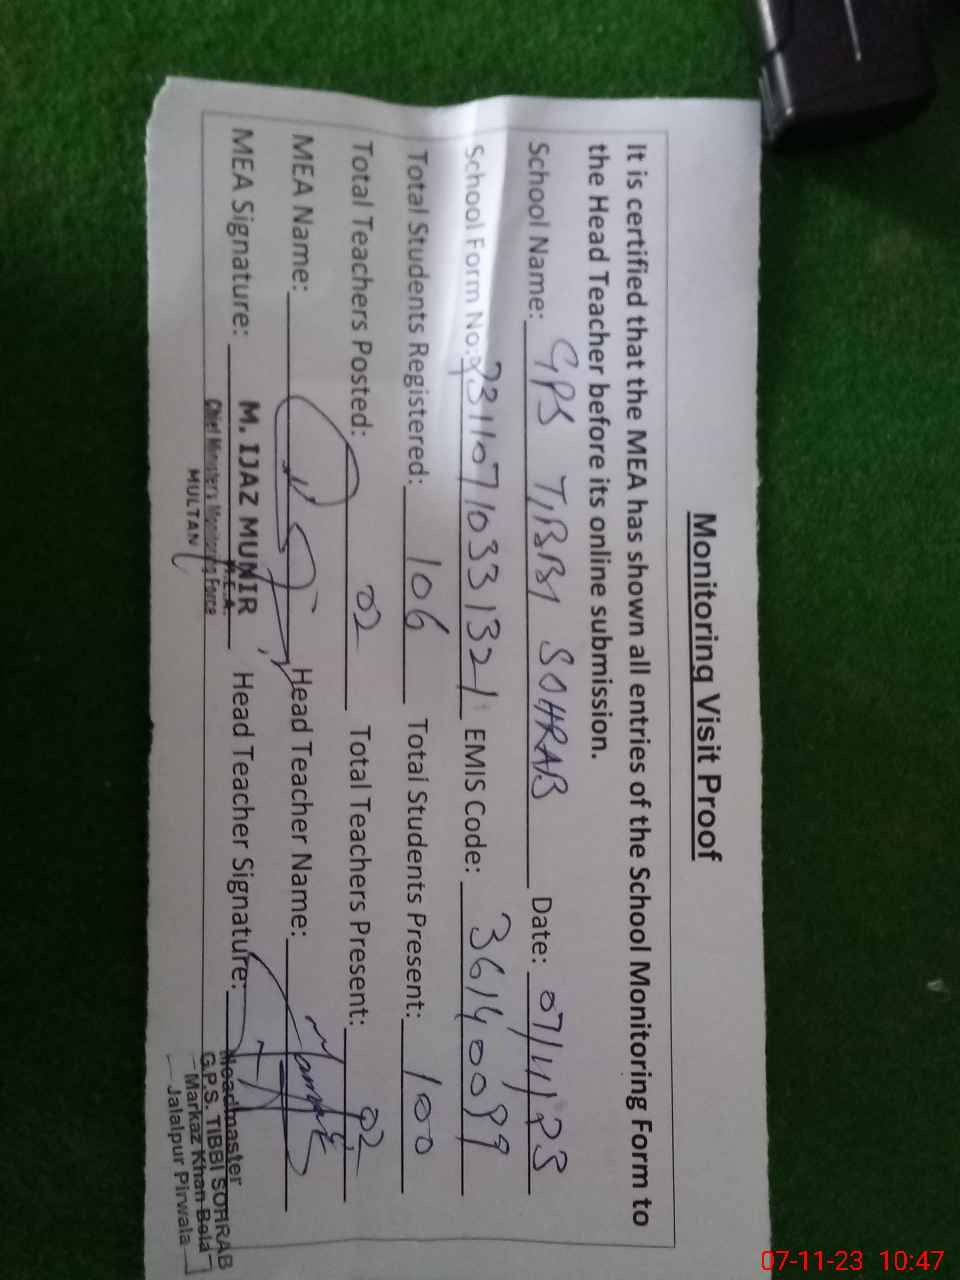 Monitoring Visit Proof
It is certified that the MEA has shown all entries of the School Monitoring Form to
the Head Teacher before its online submission.
School Name: GPS TIBBI SOHRAB Date: 07/11/23
School Form No: 3110710331321 EMIS Code: 36140099
Total Students Registered: 106 Total Students Present: 100
Total Teachers Posted: 02 Total Teachers Present: 02
MEA Name: Head Teacher Name:
MEA Signature: M. IJAZ MUNIR Head Teacher Signature:
M.E.A.
Chief Minister's Monitoring Force
MULTAN
Headmaster
G.P.S. TIBBI SOHRAB
Markaz Khan Bela
Jalalpur Pirwala
07-11-23 10:47